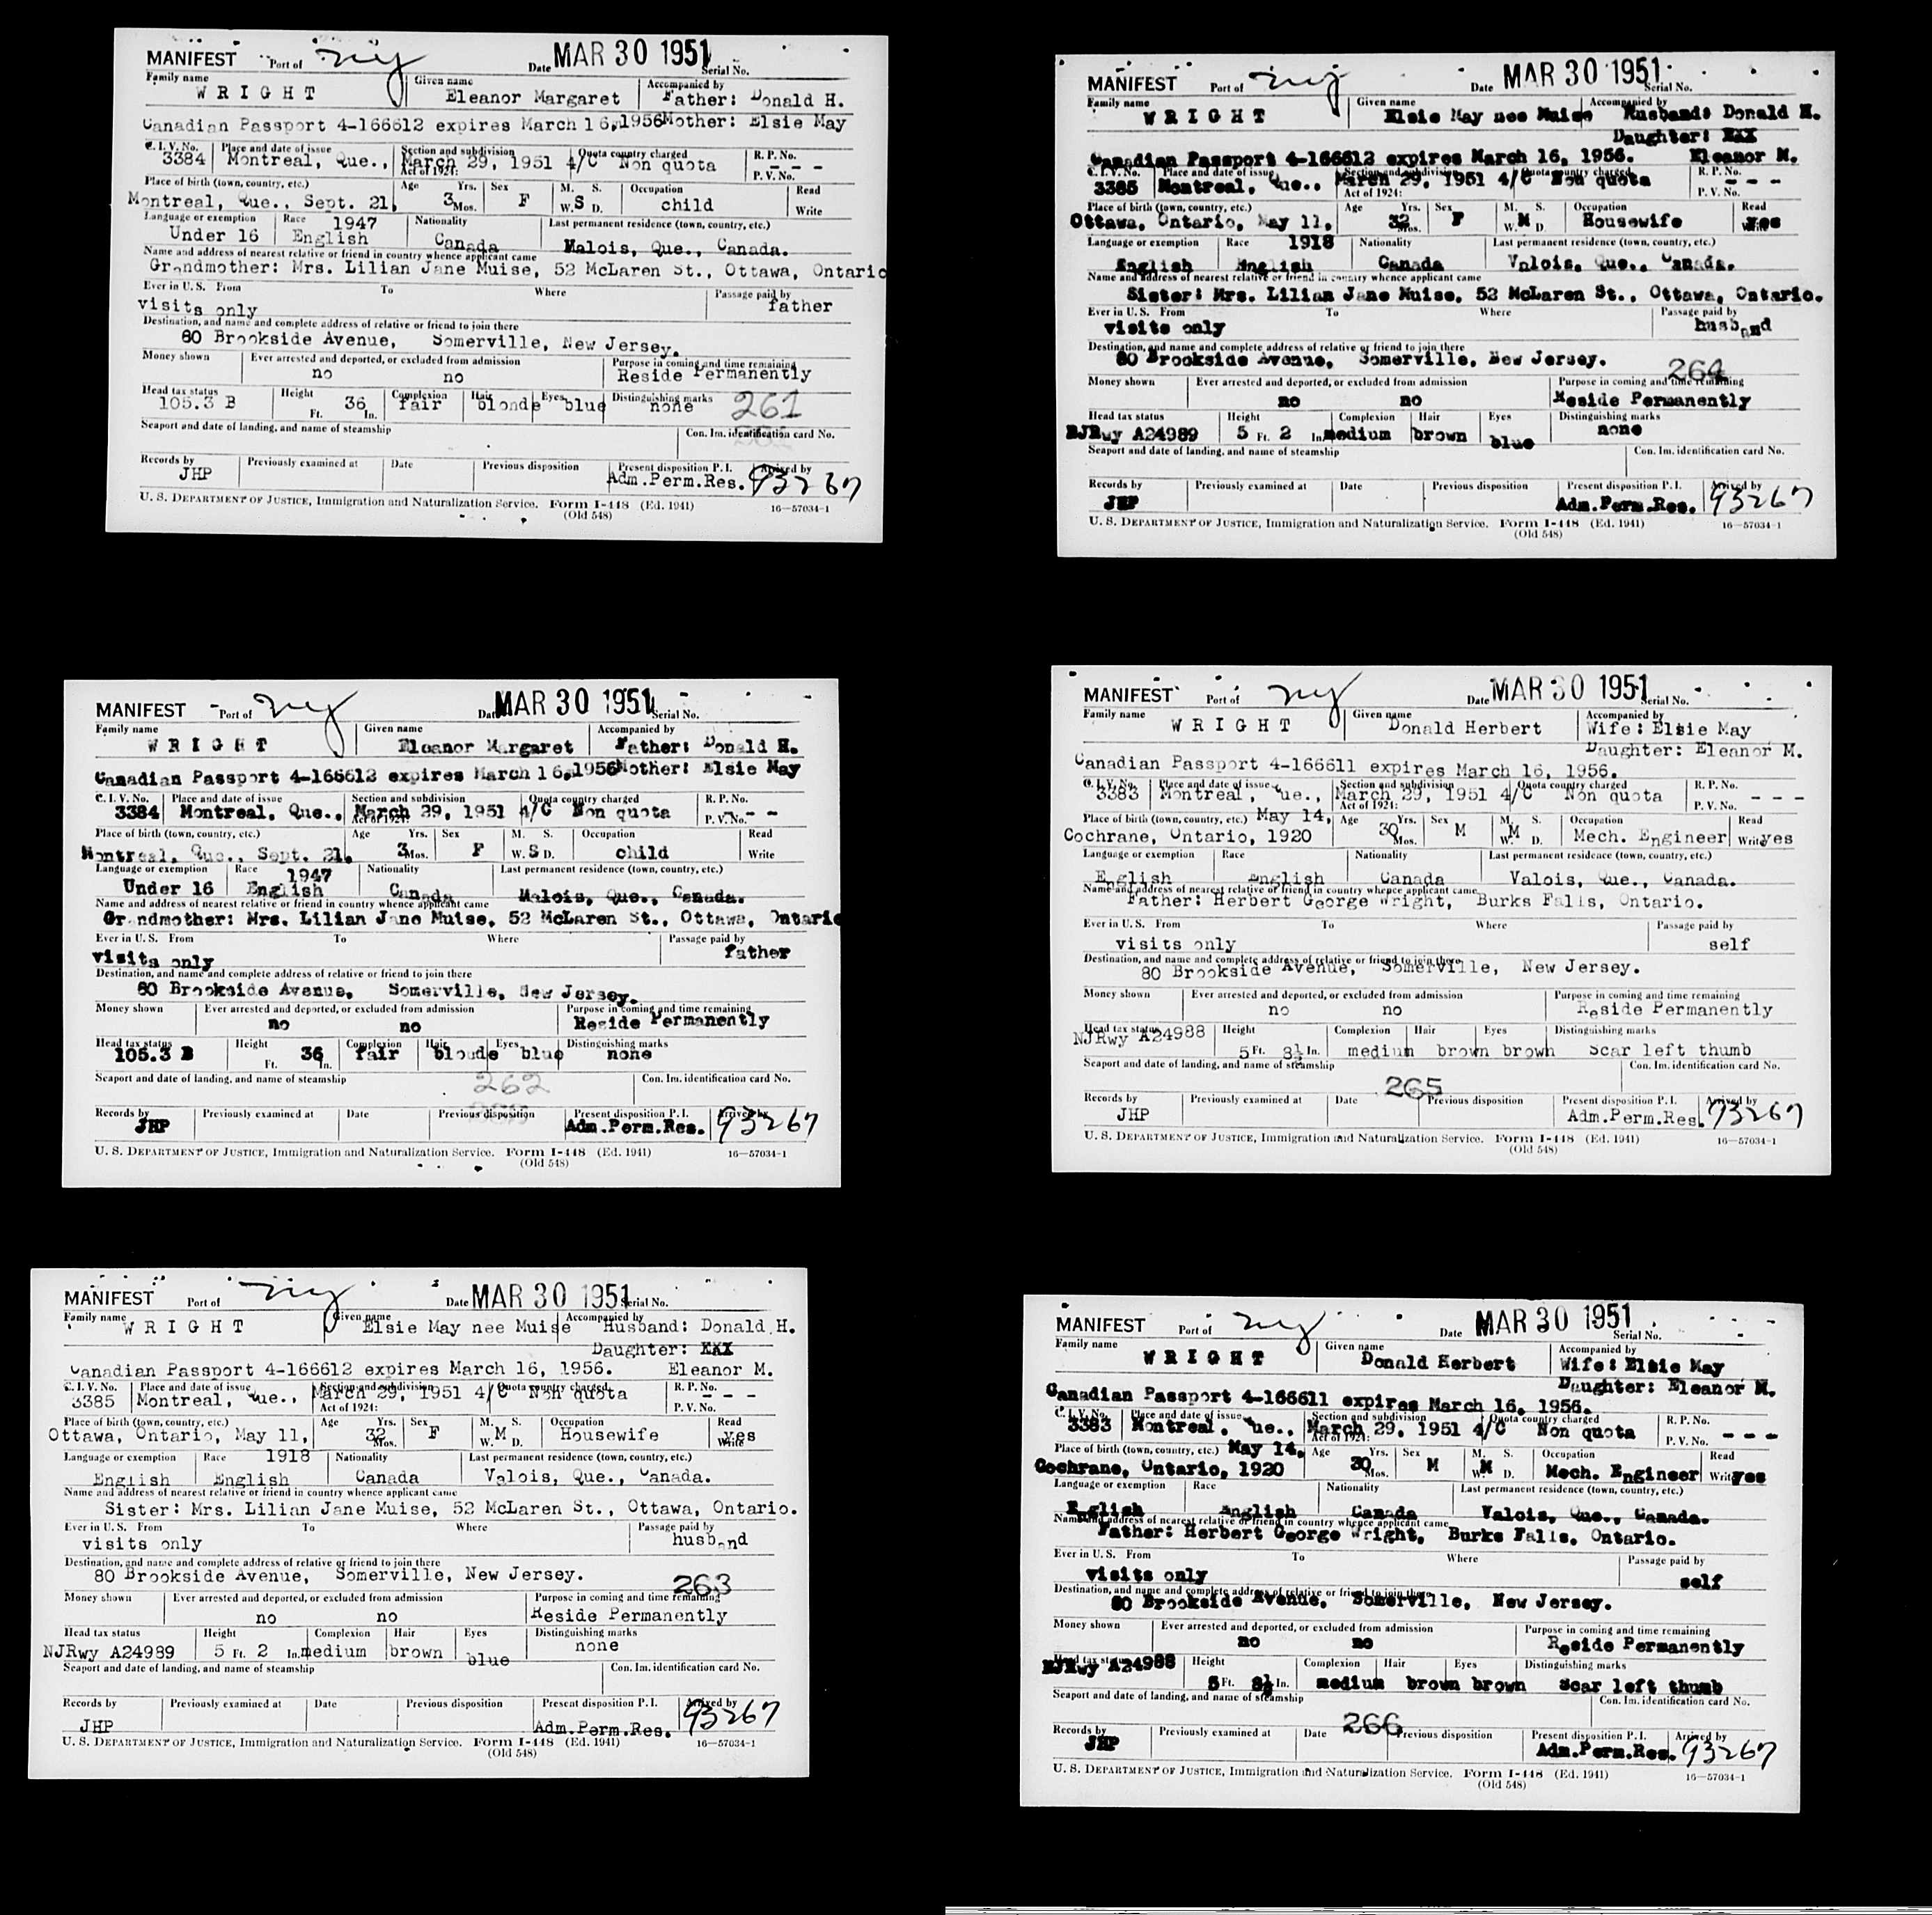 MANIFEST Port of ny Date MAR 30 1951 Serial No.
Family name Given name Accompanied by
WRIGHT Eleanor Margaret Father: Donald H.
Canadian Passport 4-166612 expires March 16,1956 Mother: Elsie May
C. I. V. No. Place and date of issue Section and subdivision Quota country charged R. P. No.
3384 Montreal, Que., March 29, 1951 4/C Non quota - - -
Act of 1924: P. V. No.
Place of birth (town, country, etc.) Age Yrs. Sex M. S. Occupation Read
Montreal, Que., Sept. 21, 3 Mos. F W. S D. child Write
Language or exemption Race 1947 Nationality Last permanent residence (town, country, etc.)
Under 16 English Canada Malois, Que., Canada.
Name and address of nearest relative or friend in country whence applicant came
Grandmother: Mrs. Lilian Jane Muise, 52 McLaren St., Ottawa, Ontario
Ever in U. S. From To Where Passage paid by
visits only father
Destination, and name and complete address of relative or friend to join there
80 Brookside Avenue, Somerville, New Jersey.
Money shown Ever arrested and deported, or excluded from admission Purpose in coming and time remaining
no no Reside Permanently
Head tax status Height Complexion Hair Eyes Distinguishing marks
105.3 B Ft. 36 In. fair blonde blue none 261
Seaport and date of landing, and name of steamship Con. Im. identification card No.
Records by Previously examined at Date Previous disposition Present disposition P. I. Arrived by
JHP Adm.Perm.Res. 93267
U. S. DEPARTMENT OF JUSTICE, Immigration and Naturalization Service. Form I-448 (Ed. 1941) 16—57034-1
(Old 548)
MANIFEST Port of ny Date MAR 30 1951 Serial No.
Family name Given name Accompanied by
WRIGHT Elsie May nee Muise Husband: Donald H.
Daughter: XXX
Canadian Passport 4-166612 expires March 16, 1956. Eleanor M.
C. I. V. No. Place and date of issue Section and subdivision Quota country charged R. P. No.
3385 Montreal, Que., March 29, 1951 4/C Non quota - - -
Act of 1924: P. V. No.
Place of birth (town, country, etc.) Age Yrs. Sex M. S. Occupation Read
Ottawa, Ontario, May 11, 32 Mos. F W. M D. Housewife yes Write
Language or exemption Race 1918 Nationality Last permanent residence (town, country, etc.)
English English Canada Valois, Que., Canada.
Name and address of nearest relative or friend in country whence applicant came
Sister: Mrs. Lilian Jane Muise, 52 McLaren St., Ottawa, Ontario.
Ever in U. S. From To Where Passage paid by
visits only husband
Destination, and name and complete address of relative or friend to join there
80 Brookside Avenue, Somerville, New Jersey. 264
Money shown Ever arrested and deported, or excluded from admission Purpose in coming and time remaining
no no Reside Permanently
Head tax status Height Complexion Hair Eyes Distinguishing marks
NJRwy A24989 5 Ft. 2 In. medium brown blue none
Seaport and date of landing, and name of steamship Con. Im. identification card No.
Records by Previously examined at Date Previous disposition Present disposition P. I. Arrived by
JHP Adm.Perm.Res. 93267
U. S. DEPARTMENT OF JUSTICE, Immigration and Naturalization Service. Form I-448 (Ed. 1941) 16—57034-1
(Old 548)
MANIFEST Port of ny Date MAR 30 1951 Serial No.
Family name Given name Accompanied by
WRIGHT Eleanor Margaret Father: Donald H.
Canadian Passport 4-166612 expires March 16,1956 Mother: Elsie May
C. I. V. No. Place and date of issue Section and subdivision Quota country charged R. P. No.
3384 Montreal, Que., March 29, 1951 4/C Non quota - - -
Act of 1924: P. V. No.
Place of birth (town, country, etc.) Age Yrs. Sex M. S. Occupation Read
Montreal, Que., Sept. 21, 3 Mos. F W. S D. child Write
Language or exemption Race 1947 Nationality Last permanent residence (town, country, etc.)
Under 16 English Canada Malois, Que., Canada.
Name and address of nearest relative or friend in country whence applicant came
Grandmother: Mrs. Lilian Jane Muise, 52 McLaren St., Ottawa, Ontario
Ever in U. S. From To Where Passage paid by
visits only father
Destination, and name and complete address of relative or friend to join there
80 Brookside Avenue, Somerville, New Jersey.
Money shown Ever arrested and deported, or excluded from admission Purpose in coming and time remaining
no no Reside Permanently
Head tax status Height Complexion Hair Eyes Distinguishing marks
105.3 B Ft. 36 In. fair blonde blue none
Seaport and date of landing, and name of steamship 262 Con. Im. identification card No.
Records by Previously examined at Date Previous disposition Present disposition P. I. Arrived by
JHP Adm.Perm.Res. 93267
U. S. DEPARTMENT OF JUSTICE, Immigration and Naturalization Service. Form I-448 (Ed. 1941) 16—57034-1
(Old 548)
MANIFEST Port of ny Date MAR 30 1951 Serial No.
Family name Given name Accompanied by
WRIGHT Donald Herbert Wife: Elsie May
Daughter: Eleanor M.
Canadian Passport 4-166611 expires March 16, 1956.
C. I. V. No. Place and date of issue Section and subdivision Quota country charged R. P. No.
3383 Montreal, Que., March 29, 1951 4/C Non quota - - -
Act of 1924: P. V. No.
Place of birth (town, country, etc.) May 14, Age Yrs. Sex M. S. Occupation Read
Cochrane, Ontario, 1920 30 Mos. M W. M D. Mech. Engineer Write yes
Language or exemption Race Nationality Last permanent residence (town, country, etc.)
English English Canada Valois, Que., Canada.
Name and address of nearest relative or friend in country whence applicant came
Father: Herbert George Wright, Burks Falls, Ontario.
Ever in U. S. From To Where Passage paid by
visits only self
Destination, and name and complete address of relative or friend to join there
80 Brookside Avenue, Somerville, New Jersey.
Money shown Ever arrested and deported, or excluded from admission Purpose in coming and time remaining
no no Reside Permanently
Head tax status Height Complexion Hair Eyes Distinguishing marks
NJRwy A24988 5 Ft. 8½ In. medium brown brown Scar left thumb
Seaport and date of landing, and name of steamship Con. Im. identification card No.
265
Records by Previously examined at Date Previous disposition Present disposition P. I. Arrived by
JHP Adm.Perm.Res. 93267
U. S. DEPARTMENT OF JUSTICE, Immigration and Naturalization Service. Form I-448 (Ed. 1941) 16—57034-1
(Old 548)
MANIFEST Port of ny Date MAR 30 1951 Serial No.
Family name Given name Accompanied by
WRIGHT Elsie May nee Muise Husband: Donald H.
Daughter: XXX
Canadian Passport 4-166612 expires March 16, 1956. Eleanor M.
C. I. V. No. Place and date of issue Section and subdivision Quota country charged R. P. No.
3385 Montreal, Que., March 29, 1951 4/C Non quota - - -
Act of 1924: P. V. No.
Place of birth (town, country, etc.) Age Yrs. Sex M. S. Occupation Read
Ottawa, Ontario, May 11, 32 Mos. F W. M D. Housewife yes Write
Language or exemption Race 1918 Nationality Last permanent residence (town, country, etc.)
English English Canada Valois, Que., Canada.
Name and address of nearest relative or friend in country whence applicant came
Sister: Mrs. Lilian Jane Muise, 52 McLaren St., Ottawa, Ontario.
Ever in U. S. From To Where Passage paid by
visits only husband
Destination, and name and complete address of relative or friend to join there
80 Brookside Avenue, Somerville, New Jersey. 263
Money shown Ever arrested and deported, or excluded from admission Purpose in coming and time remaining
no no Reside Permanently
Head tax status Height Complexion Hair Eyes Distinguishing marks
NJRwy A24989 5 Ft. 2 In. medium brown blue none
Seaport and date of landing, and name of steamship Con. Im. identification card No.
Records by Previously examined at Date Previous disposition Present disposition P. I. Arrived by
JHP Adm.Perm.Res. 93267
U. S. DEPARTMENT OF JUSTICE, Immigration and Naturalization Service. Form I-448 (Ed. 1941) 16—57034-1
(Old 548)
MANIFEST Port of ny Date MAR 30 1951 Serial No.
Family name Given name Accompanied by
WRIGHT Donald Herbert Wife: Elsie May
Daughter: Eleanor M.
Canadian Passport 4-166611 expires March 16, 1956.
C. I. V. No. Place and date of issue Section and subdivision Quota country charged R. P. No.
3383 Montreal, Que., March 29, 1951 4/C Non quota - - -
Act of 1924: P. V. No.
Place of birth (town, country, etc.) May 14, Age Yrs. Sex M. S. Occupation Read
Cochrane, Ontario, 1920 30 Mos. M W. M D. Mech. Engineer Write yes
Language or exemption Race Nationality Last permanent residence (town, country, etc.)
English English Canada Valois, Que., Canada.
Name and address of nearest relative or friend in country whence applicant came
Father: Herbert George Wright, Burks Falls, Ontario.
Ever in U. S. From To Where Passage paid by
visits only self
Destination, and name and complete address of relative or friend to join there
80 Brookside Avenue, Somerville, New Jersey.
Money shown Ever arrested and deported, or excluded from admission Purpose in coming and time remaining
no no Reside Permanently
Head tax status Height Complexion Hair Eyes Distinguishing marks
NJRwy A24988 5 Ft. 8½ In. medium brown brown Scar left thumb
Seaport and date of landing, and name of steamship Con. Im. identification card No.
266
Records by Previously examined at Date Previous disposition Present disposition P. I. Arrived by
JHP Adm.Perm.Res. 93267
U. S. DEPARTMENT OF JUSTICE, Immigration and Naturalization Service. Form I-448 (Ed. 1941) 16—57034-1
(Old 548)